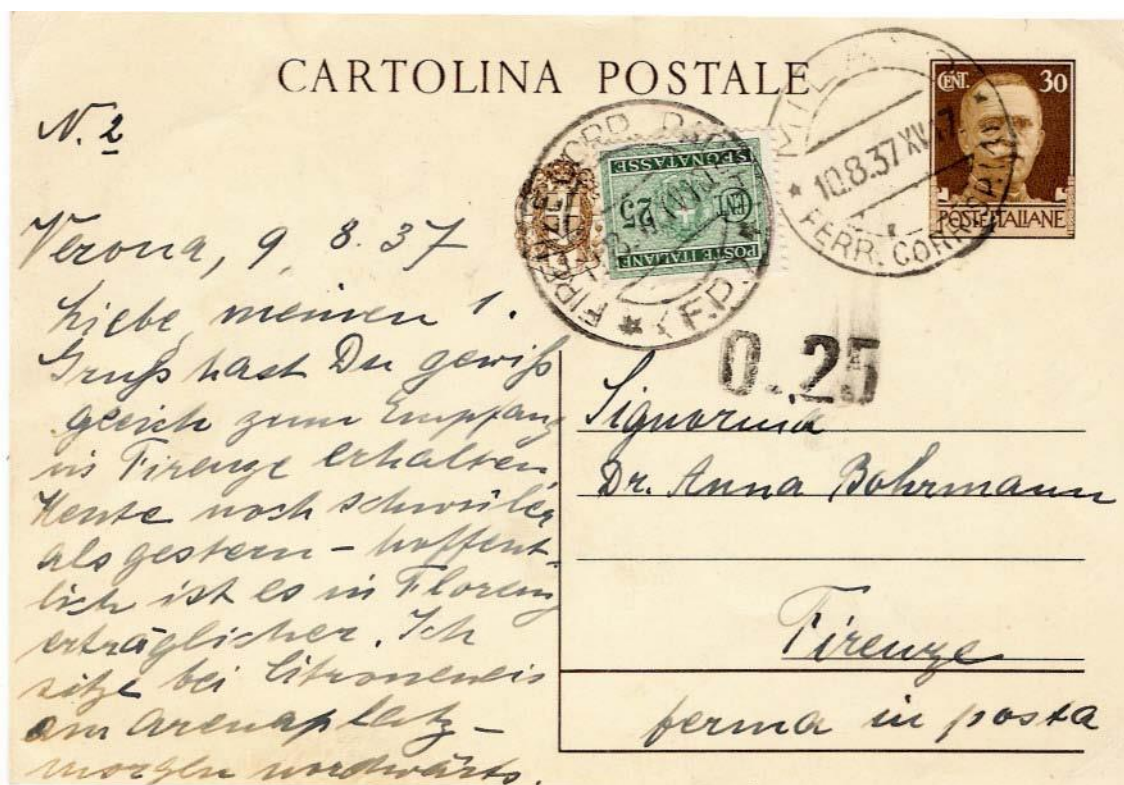 CARTOLINA POSTALE
CENT. 30
POSTE ITALIANE
MILANO
10.8.37 XV 17
FERR. CORRISP.
SEGNATASSE
CENT 25
POSTE ITALIANE
FIRENZE
(F.D.)
0.25
N. 2
Verona, 9. 8. 37
Liebe, meinen 1.
Gruß hast Du gewiß
gleich zum Empfang
in Firenze erhalten
Heute noch schwüler
als gestern – hoffent-
lich ist es in Florenz
erträglicher. Ich
sitze bei Citroneneis
am Arenaplatz –
morgen nordwärts.
Signorina
Dr. Anna Bohrmann
Firenze
ferma in posta